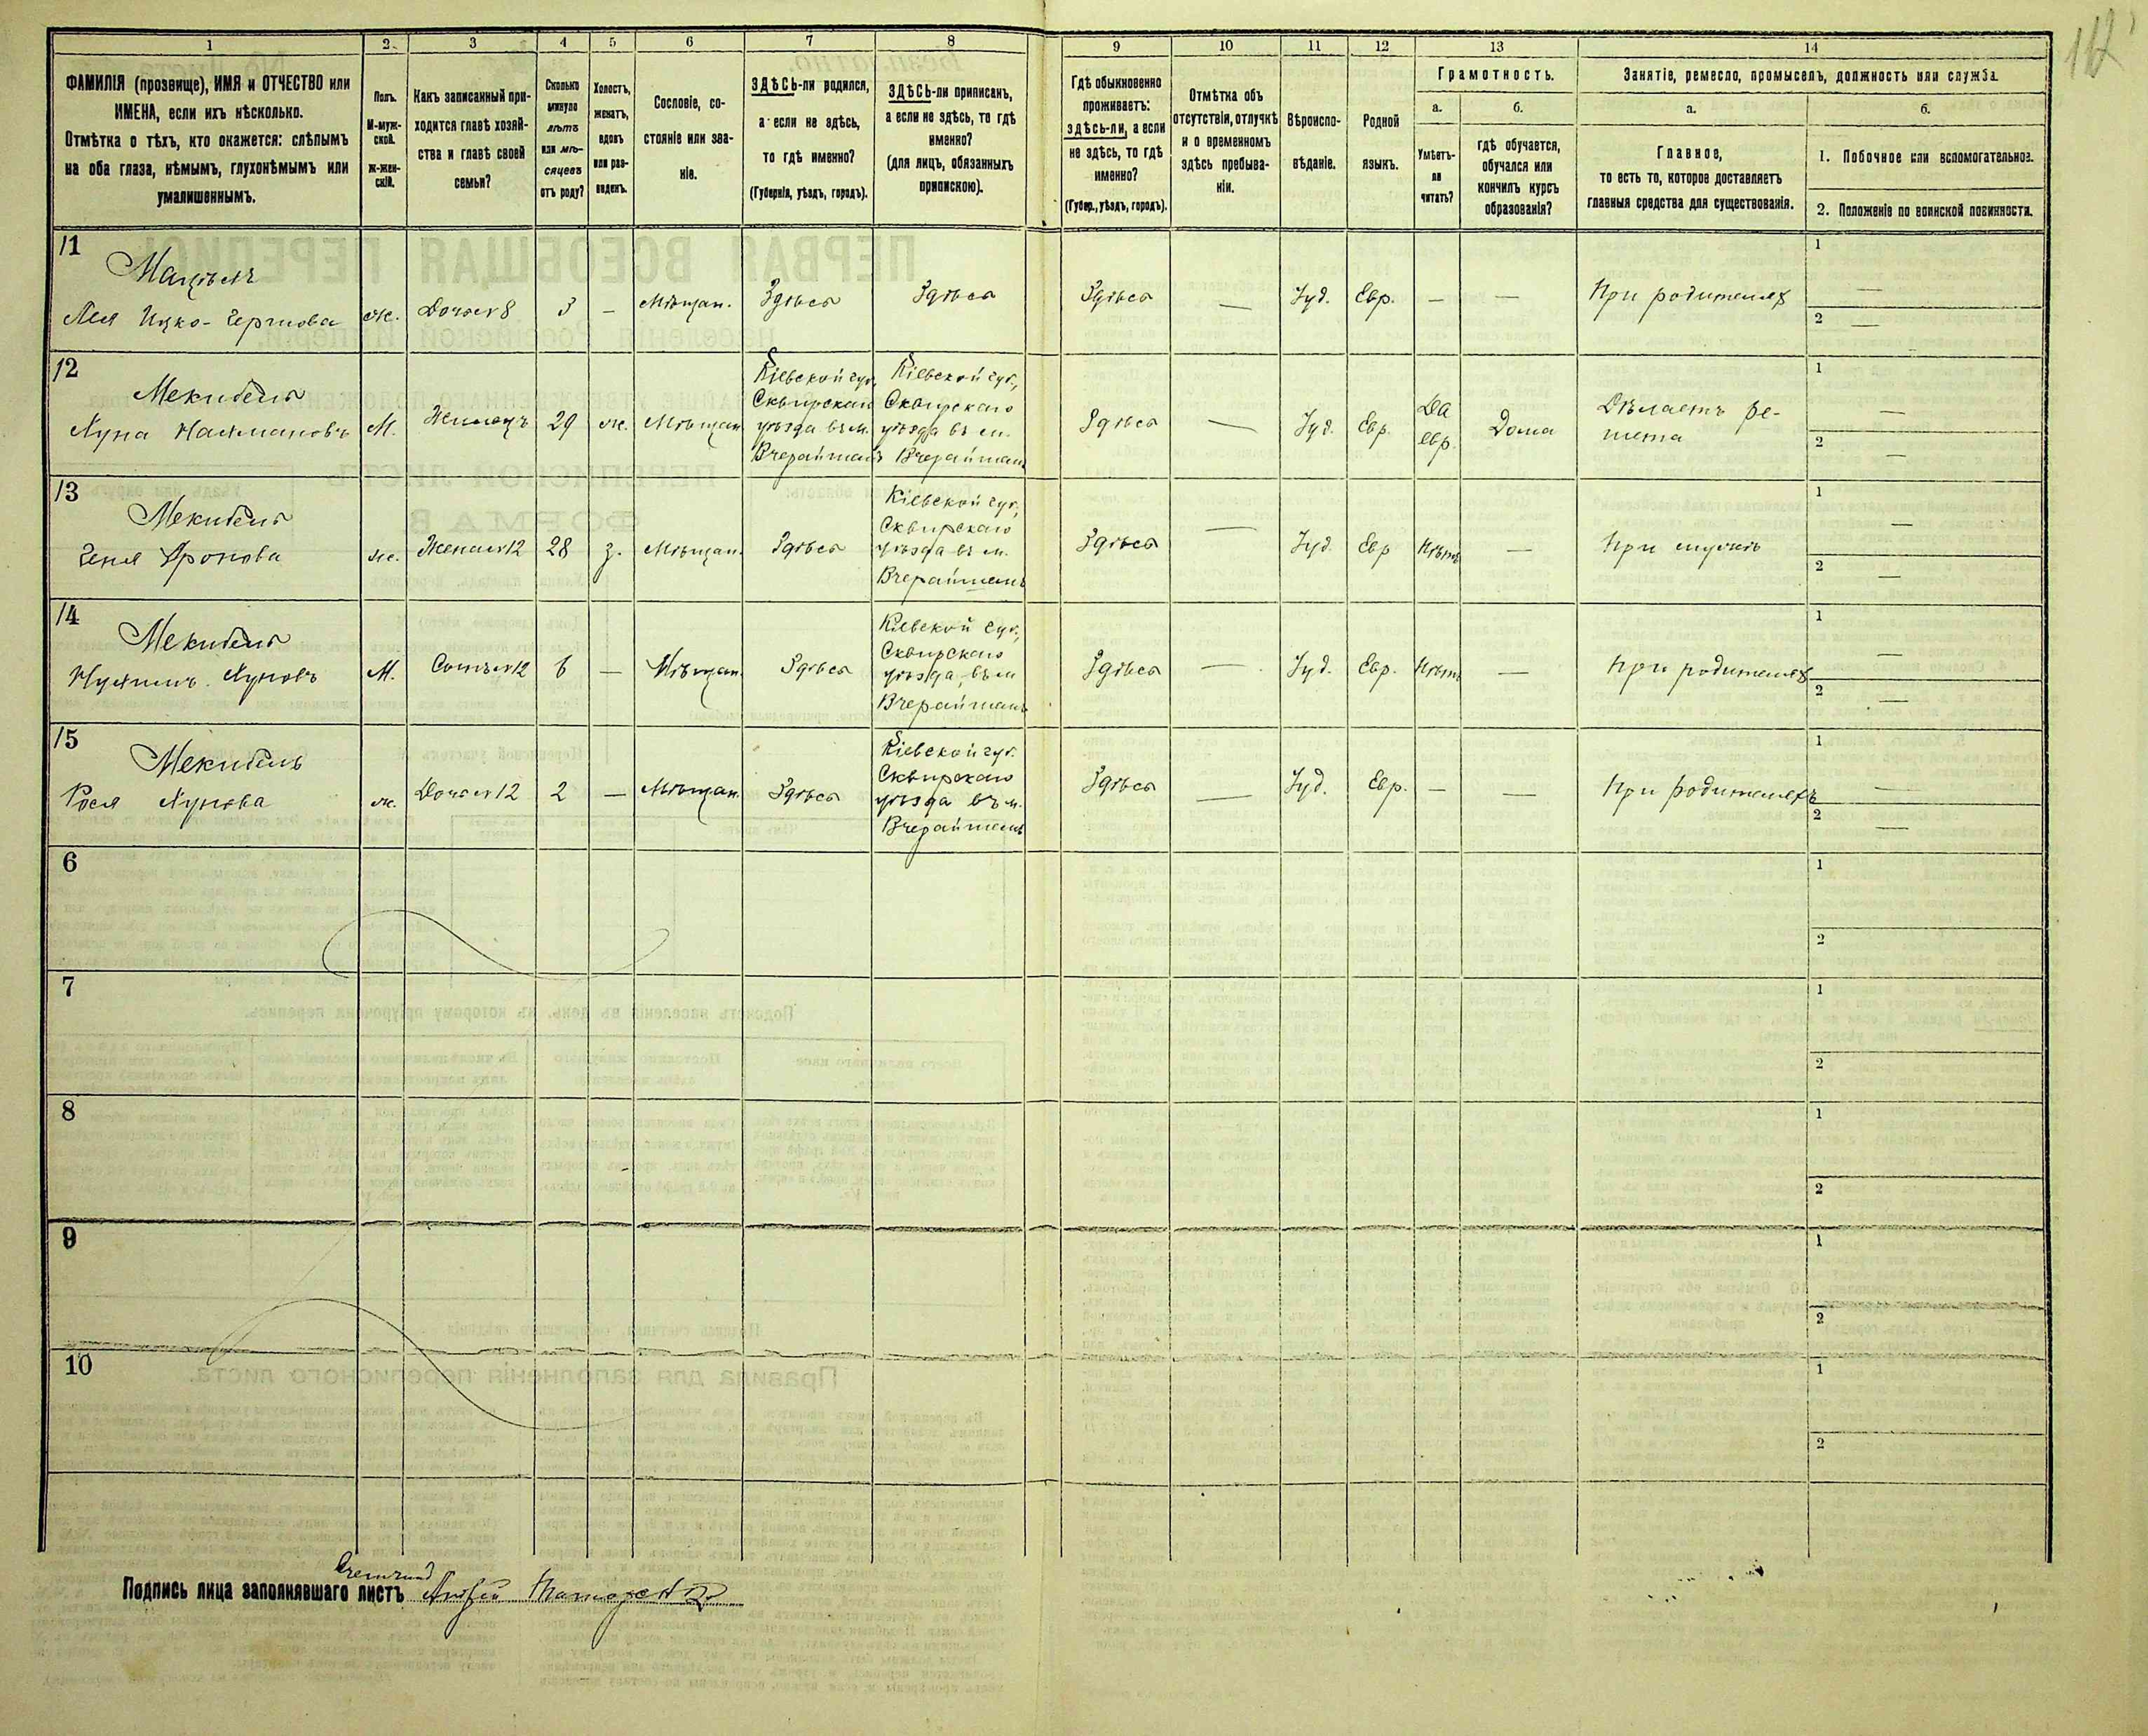 1
2
3
4
5
6
7
8
9
10
11
12
13
14
ФАМИЛІЯ (прозвище), ИМЯ и ОТЧЕСТВО или
ИМЕНА, если ихъ нѣсколько.
Отмѣтка о тѣхъ, кто окажется: слѣпымъ
на оба глаза, нѣмымъ, глухонѣмымъ или
умалишеннымъ.
Полъ.
М-муж-
ской.
Ж-жен-
скій.
Какъ записанный при-
ходится главѣ хозяй-
ства и главѣ своей
семьи?
Сколько
минуло
лѣтъ
или мѣ-
сяцевъ
отъ роду?
Холостъ,
женатъ,
вдовъ
или раз-
веденъ.
Сословіе, со-
стояніе или зва-
ніе.
ЗДѢСЬ-ли родился,
а если не здѣсь,
то гдѣ именно?
(Губернія, уѣздъ, городъ).
ЗДѢСЬ-ли приписанъ,
а если не здѣсь, то гдѣ
именно?
(для лицъ, обязанныхъ
припискою).
Гдѣ обыкновенно
проживаетъ:
здѣсь-ли, а если
не здѣсь, то гдѣ
именно?
(Губер., уѣздъ, городъ).
Отмѣтка объ
отсутствіи, отлучкѣ
и о временномъ
здѣсь пребыва-
ніи.
Вѣроиспо-
вѣданіе.
Родной
языкъ.
Грамотность.
а.
Умѣетъ-
ли
читать?
б.
гдѣ обучается,
обучался или
кончилъ курсъ
образованія?
Занятіе, ремесло, промыселъ, должность или служба.
а.
Главное,
то есть то, которое доставляетъ
главныя средства для существованія.
б.
1. Побочное или вспомогательное.
2. Положеніе по воинской повинности.
11
Лея Ицко-Гершова
ж. Дочь 8 3 — Мѣщан. Здѣсь Здѣсь Здѣсь — Іуд. Евр. — — При родителях
1 —
2 —
12
Мекибель
Хуна Нахмановъ
М. Жилецъ 29 ж. Мѣщан.
Кіевской губ.,
Сквирскаго
уѣзда въ м.
Вчерайшань
Кіевской губ.,
Сквирскаго
уѣзда въ м.
Вчерайшань
Здѣсь — Іуд. Евр.
Да
евр.
Дома
Дѣлаетъ ре-
шета
1 —
2 —
13
Мекибель
ж. Жена 12 28 з. Мѣщан. Здѣсь
Кіевской губ.,
Сквирскаго
уѣзда въ м.
Вчерайшань
Здѣсь — Іуд. Евр Нѣтъ — При мужѣ
1 —
2 —
14
Мекибель
М. Сынъ 12 6 — Мѣщан. Здѣсь
Кіевской губ.,
Сквирскаго
уѣзда, въ м
Вчерайшань
Здѣсь — Іуд. Евр. Нѣтъ — При родителях
1 —
2 —
15
Мекибель
Рося Хунова
ж. Дочь 12 2 — Мѣщан. Здѣсь
Кіевской губ.
Сквирскаго
уѣзда въ м.
Вчерайшань
Здѣсь — Іуд. Евр. — — При родителяхъ
1 —
2 —
6
1
2
7
1
2
8
1
2
9
1
2
10
1
2
Счетчикъ
Подпись лица заполнявшаго листъ